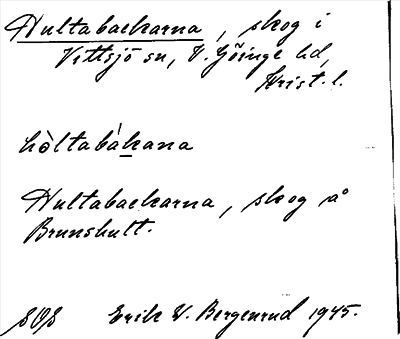 Hultabackarna, skog i
Vittsjö sn, V. Göinge hd,
Krist. l.
hòltabákana
Hultabackarna, skog å
Brunshult.
Erik W. Bergenrud 1945.